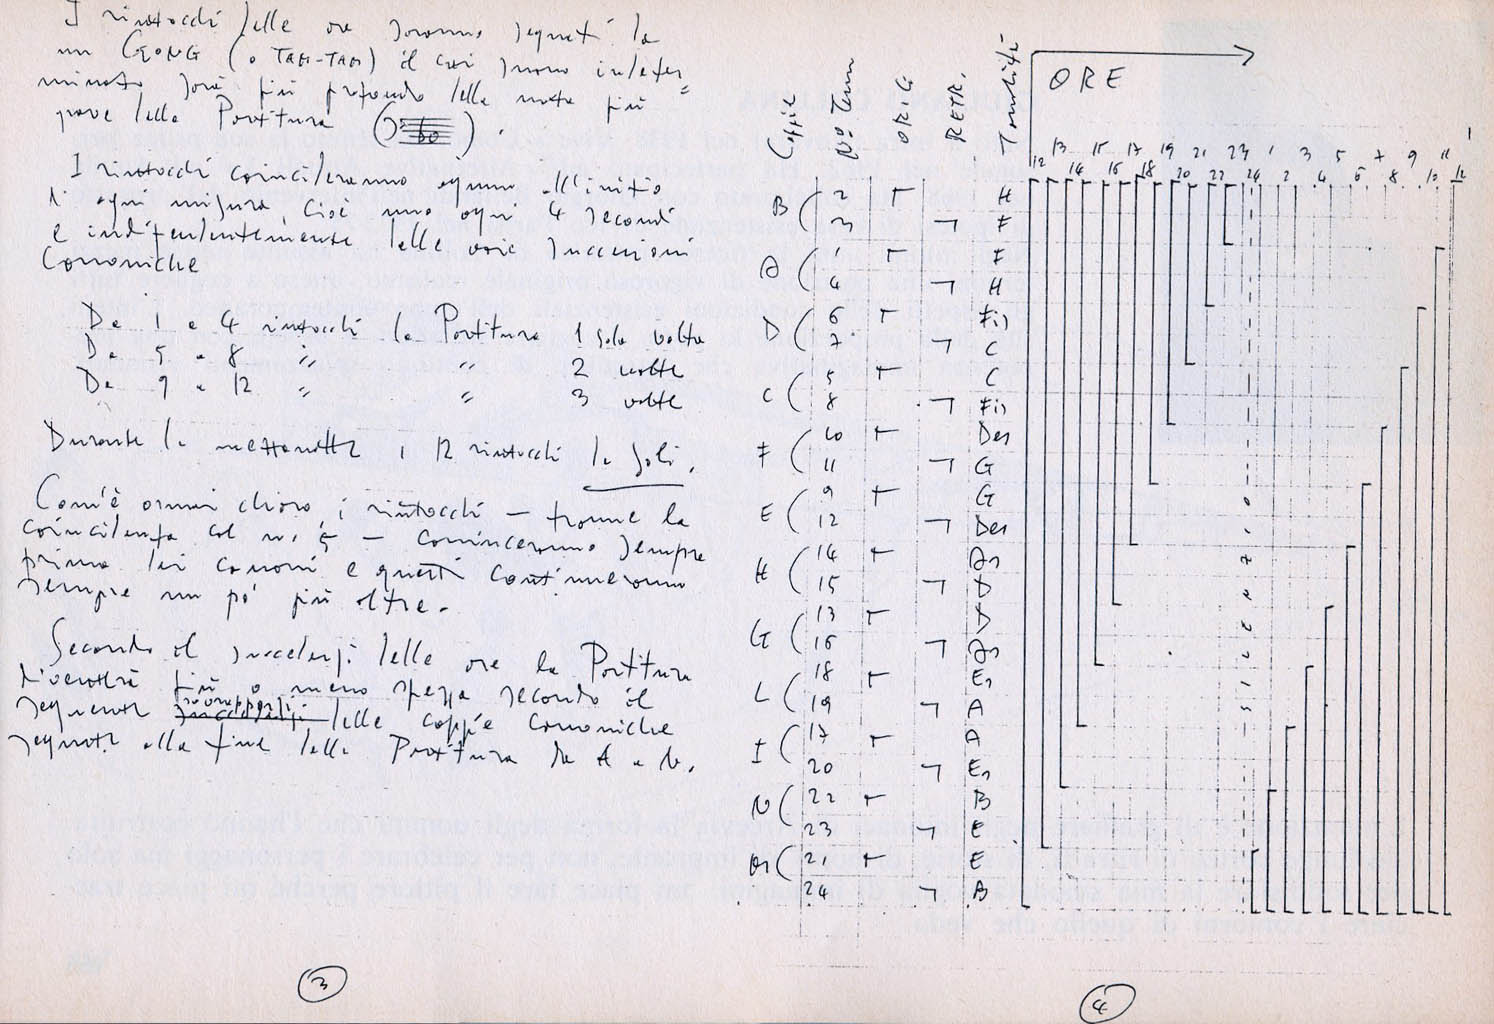 I rintocchi delle ore saranno seguiti da
un GONG (o TAM-TAM) il cui suono indeter=
minato sarà più profondo della nota più
grave della Partitura
I rintocchi coincideranno ognuno all'inizio
d'ogni misura, cioè uno ogni 4 secondi
e indipendentemente delle varie successioni
Canoniche
Da 1 a 4 rintocchi la Partitura 1 sola volta
Da 5 a 8 " " 2 volte
Da 9 a 12 " " 3 volte
Durante la mezzanotte i 12 rintocchi da soli.
Com'è ormai chiaro, i rintocchi — tranne la
coincidenza col no. 5 — cominceranno sempre
prima dei canoni e questi continueranno
sempre un pò più oltre.
Secondo il succedersi delle ore la Partitura
diventerà più o meno spessa secondo il
seguente sovrapporsi delle coppie Canoniche
segnate alla fine della Partitura da A a N.
3
Coppie No. Tema RETR. Tonalità ORE
12 13 14 15 16 17 18 19 20 21 22 23 24 1 2 3 4 5 6 7 8 9 10 11 12
B ( 2 H
3 F
A ( 1 F
4 H
D ( 6 Fis
7 C
C ( 5 C
8 Fis
F ( 10 Des
11 G
E ( 9 G
12 Des
H ( 14 As
15 D
G ( 13 D
16 As
L ( 18 Es
19 A
I ( 17 A
20 Es
N ( 22 B
23 E
M ( 21 E
24 B
SILENZIO
4